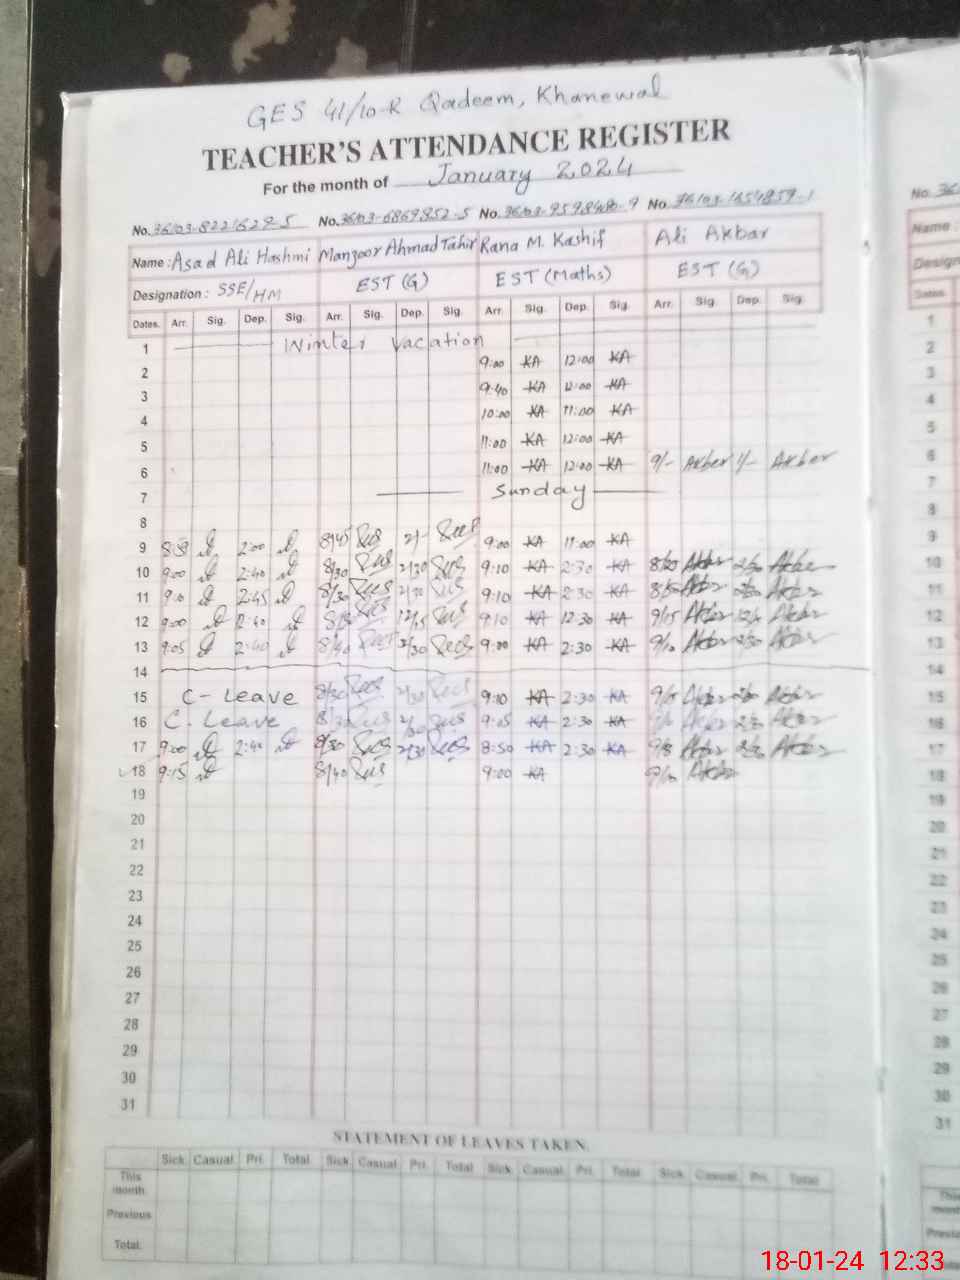 GES 41/10-R Qadeem, Khanewal
TEACHER'S ATTENDANCE REGISTER
For the month of January 2024
No. 36103-8221629-5 No. 36103-6869852-5 No. 36103-9598480-9 No. 36103-1654859-1
Name : Asad Ali Hashmi Manzoor Ahmad Tahir Rana M. Kashif Ali Akbar
Designation : SSE/HM EST (G) EST (Maths) EST (G)
Dates. Arr. Sig. Dep. Sig. Arr. Sig. Dep. Sig. Arr. Sig. Dep. Sig. Arr. Sig. Dep. Sig.
1 Winter Vacation
2 9:00 KA 12:00 KA
3 9:40 KA 12:00 KA
4 10:00 KA 11:00 KA
5 11:00 KA 12:00 KA
6 11:00 KA 12:00 KA 9/- Akber 1/- Akber
7 Sunday
8
9 2:00 8/45 2/- 9:00 KA 11:00 KA
10 9:00 2:40 8/30 2/30 9:10 KA 2:30 KA Akber
11 2:45 8/30 2/30 9:10 KA 2:30 KA Akber
12 9:00 2:40 12/15 9:10 KA 12:30 KA 9/15 Akber Akber
13 9:05 2:40 8/40 9:00 KA 2:30 KA 9/10 Akber Akber
14
15 C- Leave 8/30 2/30 9:10 KA 2:30 KA Akber Akber
16 C. Leave 8/30 9:05 KA 2:30 KA Akber Akber
17 9:00 2:40 8/30 2/30 8:50 KA 2:30 KA Akber Akber
18 9:15 8/40 9:00 KA 9/10 Akber
19
20
21
22
23
24
25
26
27
28
29
30
31
STATEMENT OF LEAVES TAKEN.
Sick Casual Pri. Total Sick Casual Pri. Total Sick Casual Pri. Total Sick Casual Pri. Total
This month
Previous
Total.
No. 36
Name :
Design
Dates.
1
2
3
4
5
6
7
8
9
10
11
12
13
14
15
16
17
18
19
20
21
22
23
24
25
26
27
28
29
30
31
This
month
Previous
Total
18-01-24 12:33